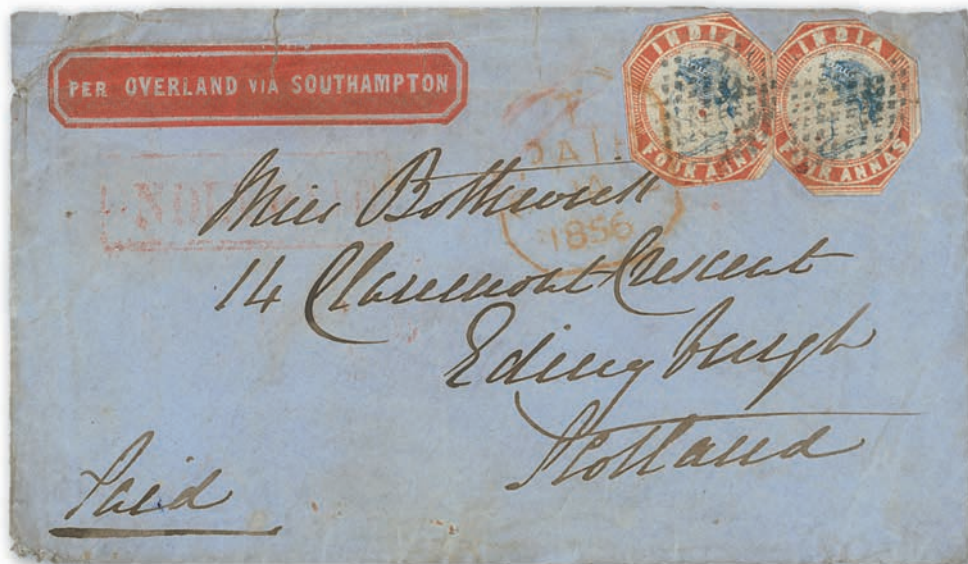 PER OVERLAND VIA SOUTHAMPTON
INDIA
FOUR ANNAS
INDIA
FOUR ANNAS
PAID
1856
Miss Borthwick
14 Claremont Crescent
Edingburgh
Scotland
Paid